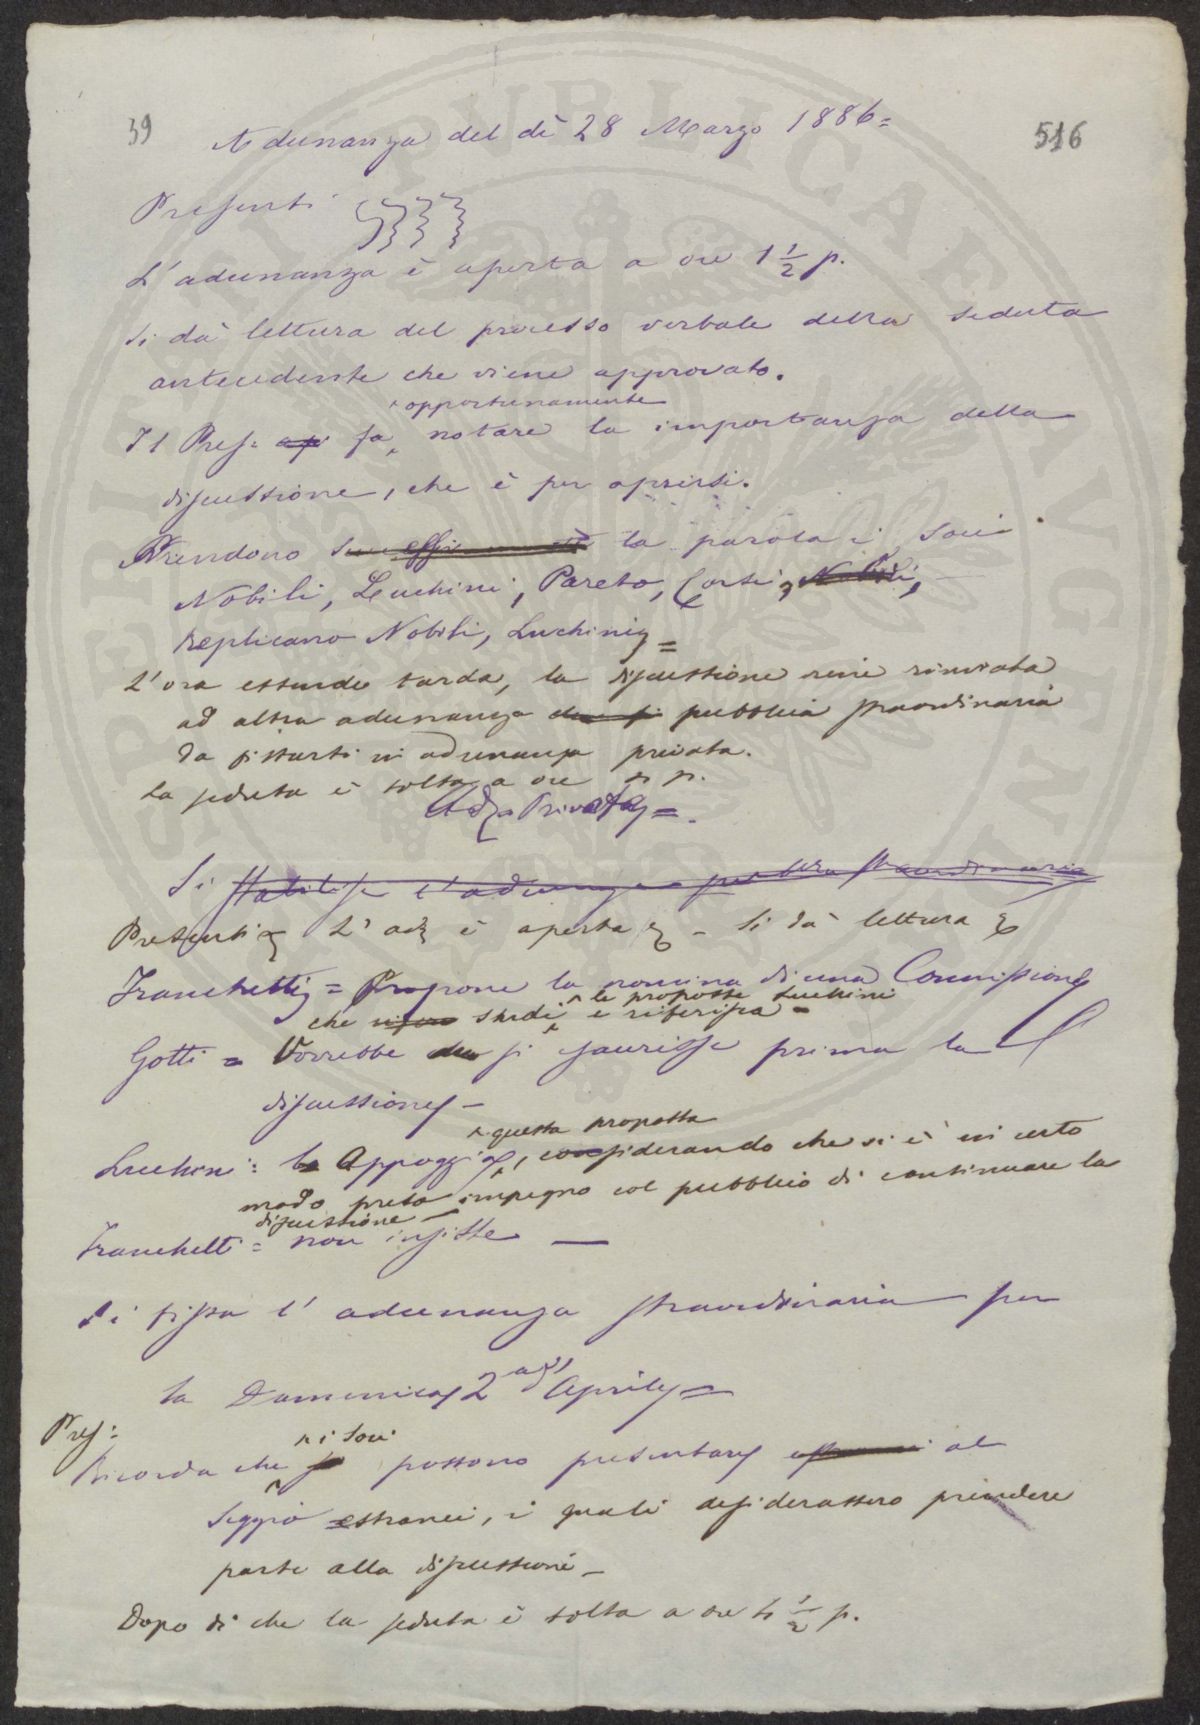 39
516
Adunanza del dì 28 Marzo 1886=
Presenti
L'adunanza è aperta a ore 1 1/2 p.
Si dà lettura del processo verbale della seduta
antecedente che viene approvato.
opportunamente
Il Pres: fa notare la importanza della
discussione, che è per aprirsi.
Prendono la parola i Soci
Nobili, Luchini, Pareto, Corsi, Nobili,
Replicano Nobili, Luchini =
L'ora essendo tarda, la discussione viene rinviata
ad altra adunanza pubblica straordinaria
da fissarsi in adunanza privata.
La seduta è tolta a ore p.
Adza Privata =
Si stabilisce l'adunanza straordinaria
Presenti L'adz è aperta - Si dà lettura
Franchetti = Propone la nomina di una Commissione
le proposte Luchini
che studi e riferisca =
Gotti = Vorrebbe si esaurisse prima la
discussione -
questa proposta
Luchini: Appoggia, considerando che si è in certo
modo preso impegno col pubblico di continuare la
discussione
Franchetti = non insiste —
Si fissa l'adunanza straordinaria per
la Domenica 2 Aprile =
Pres:
i Soci
Ricorda che possono presentare al
Seggio estranei, i quali desiderassero prendere
parte alla discussione -
Dopo di che la seduta è tolta a ore 4 1/2 p.